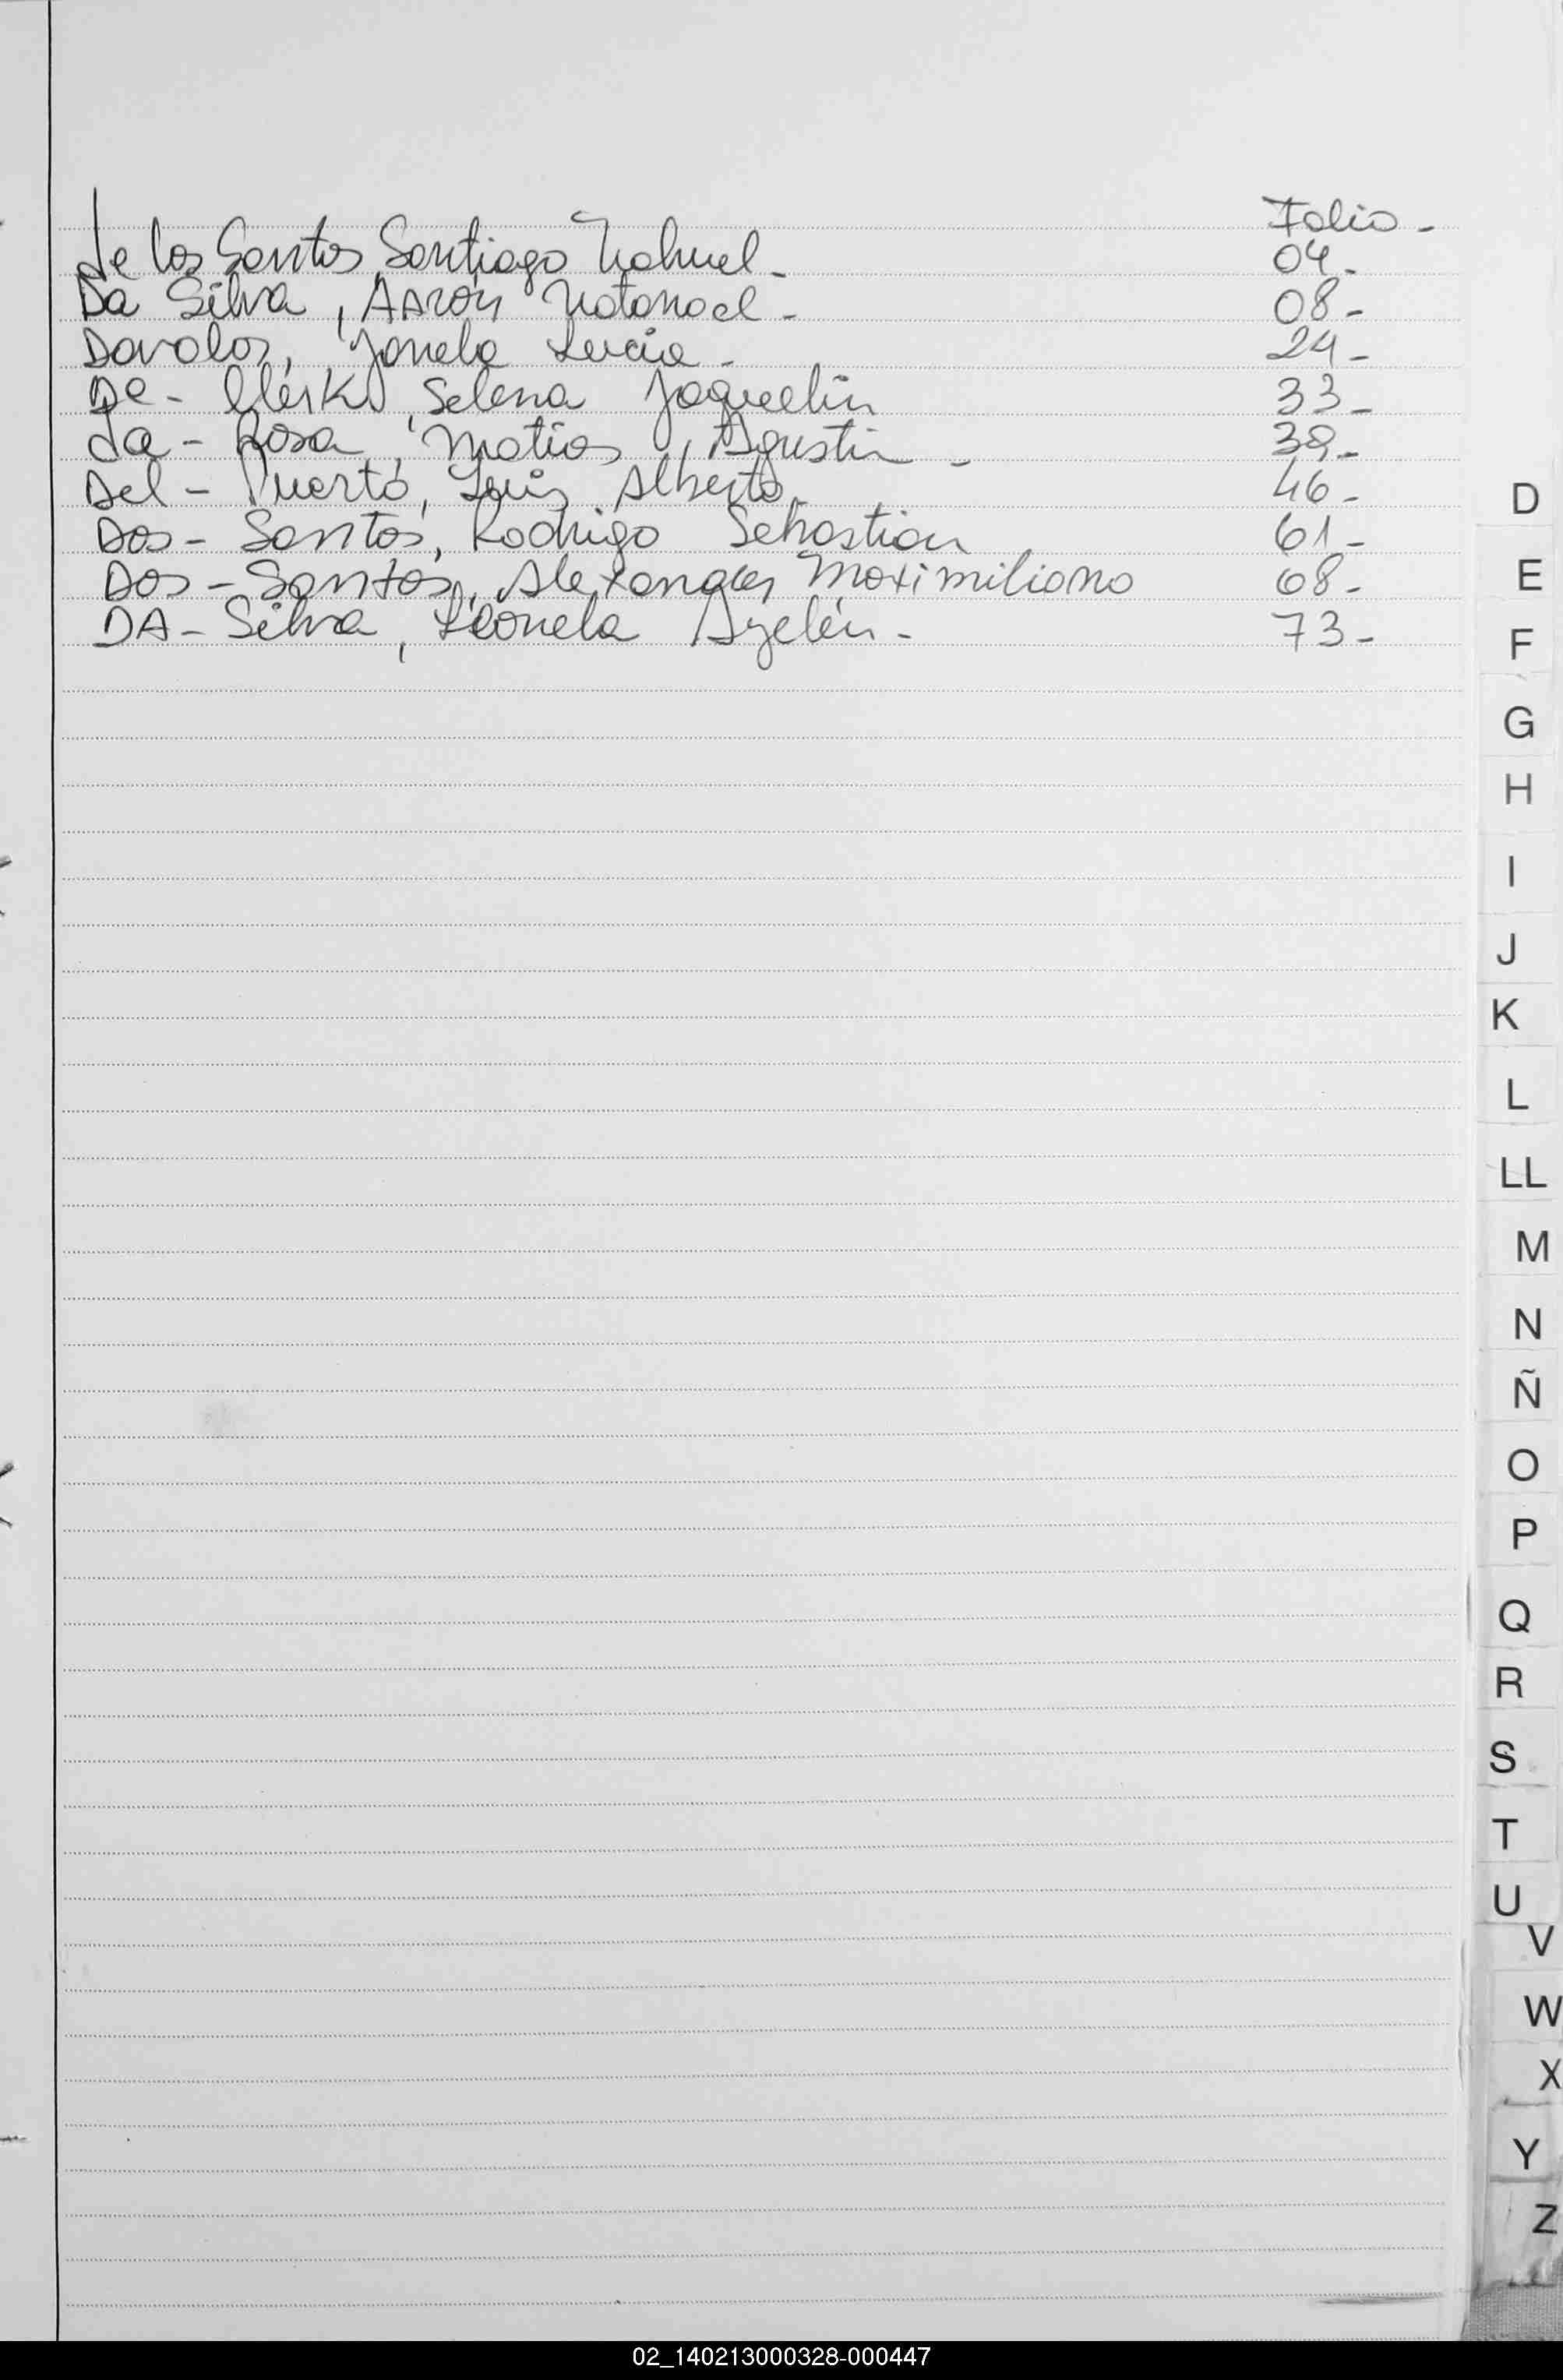 Folio -
de los Santos Santiago Nahuel - 04 -
Da Silva, Aarón Natanael - 08 -
Davalos, Yanela Lucia - 24 -
De - Clerk, Selena Jaquelin 33 -
da - Rosa, Matias, Agustin - 39 -
Del - Puerto, Luis Alberto - 46 -
Dos - Santos, Rodrigo Sebastian 61 -
Dos - Santos, Alexander Maximiliano 68 -
DA - Silva, Leonela Ayelén - 73 -
D
E
F
G
H
I
J
K
L
LL
M
N
Ñ
O
P
Q
R
S
T
U
V
W
X
Y
Z
02_140213000328-000447